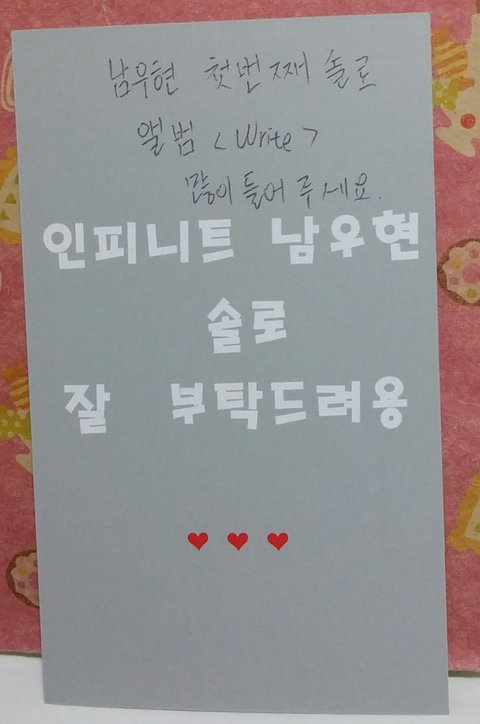 남우현 첫번째 솔로
앨범 <Write>
많이 들어 주세요.
인피니트 남우현
솔로
잘 부탁드려용